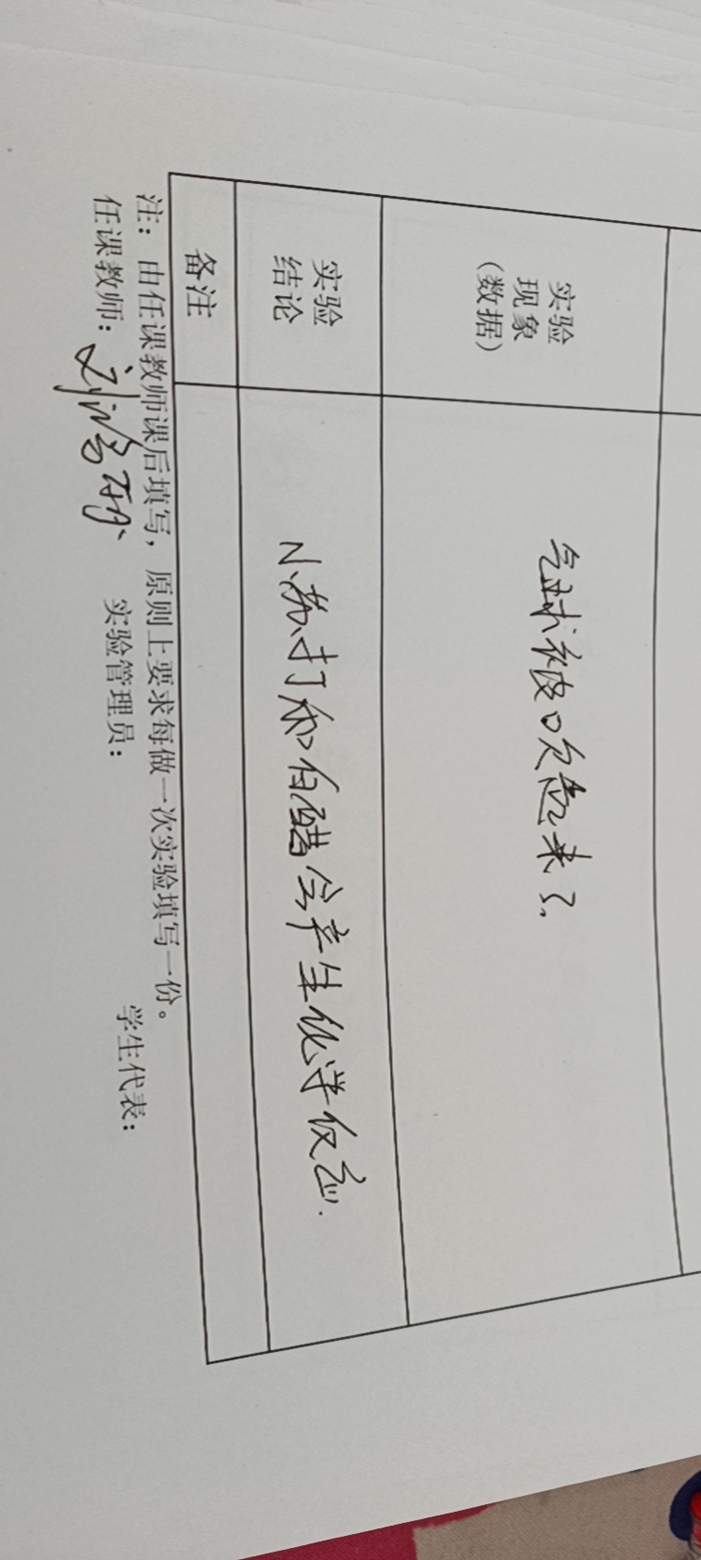 实验
现象
（数据）
气球被吹起来了.
实验
结论
小苏打和白醋会产生化学反应.
备注
注：由任课教师课后填写，原则上要求每做一次实验填写一份。
任课教师： 实验管理员： 学生代表：